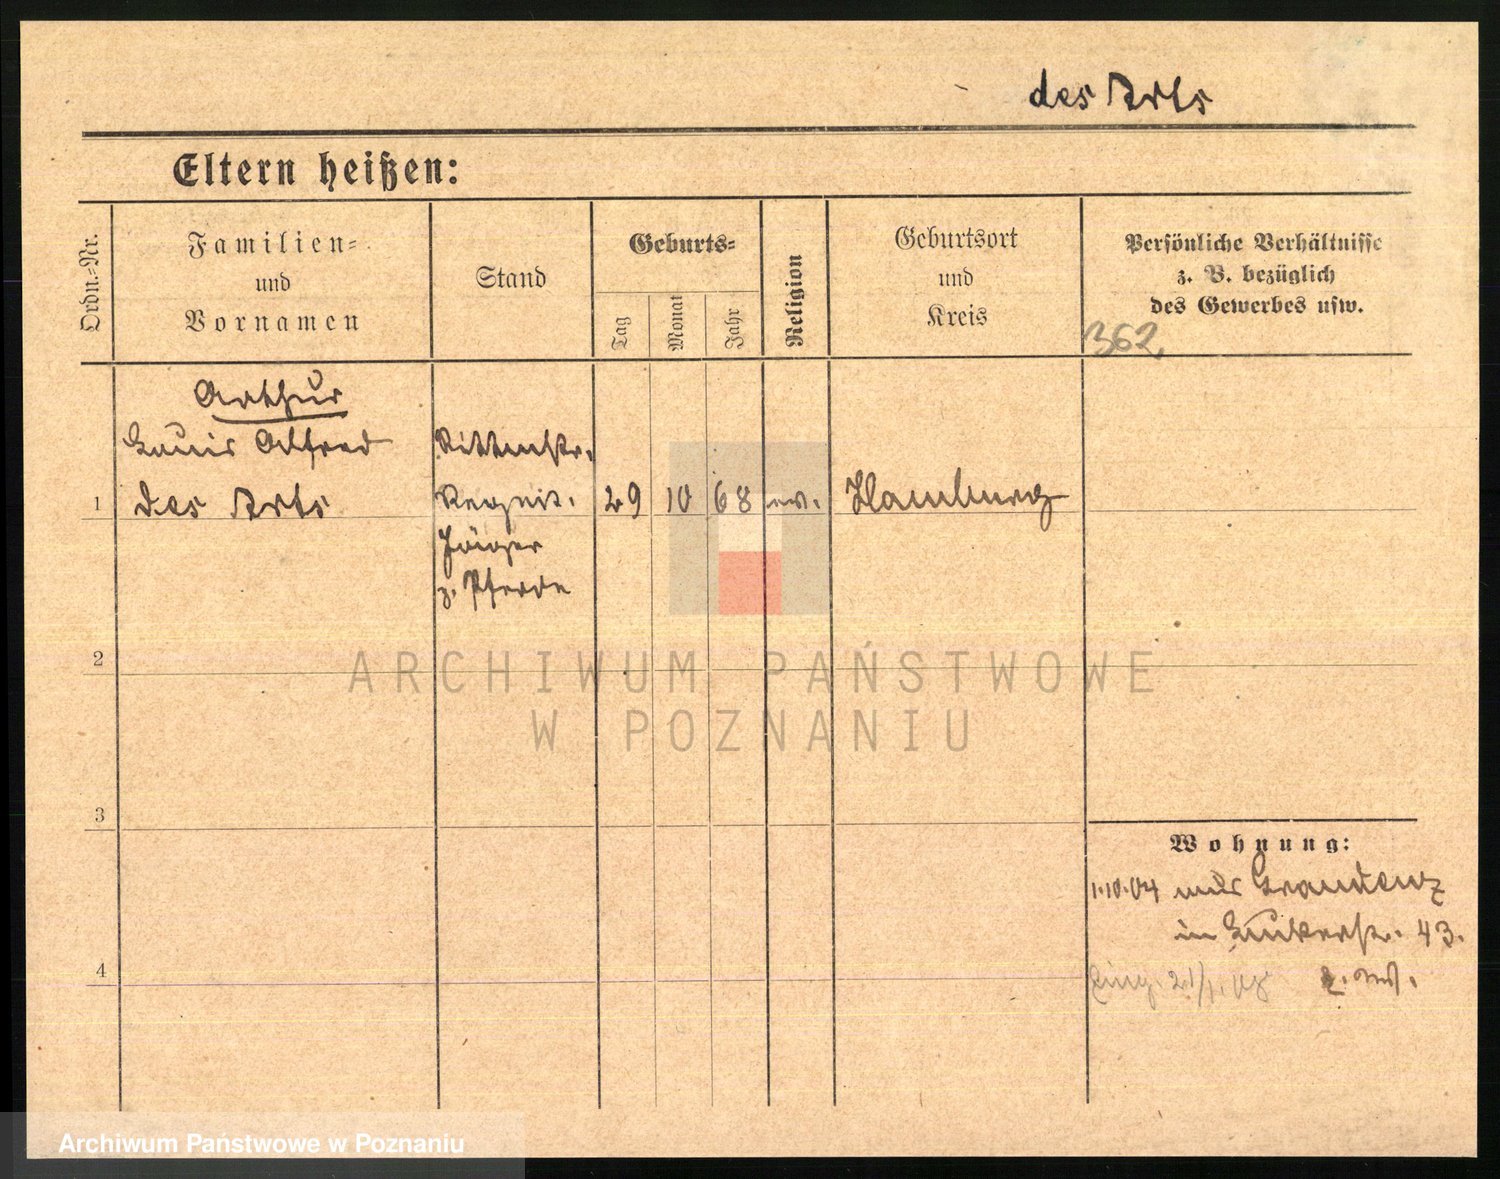 des Arts
Eltern heißen:
Ordn.-Nr.
Familien-
und
Vornamen
Stand
Geburts-
Tag
Monat
Jahr
Religion
Geburtsort
und
Kreis
Persönliche Verhältnisse
z. B. bezüglich
des Gewerbes usw.
362
Arthur
Louis Alfred
des Arts
Rittmstr.
Regmt.
Jäger
z. Pferde
1
29
10
68
ev.
Hamburg
2
3
4
Wohnung:
1.10.04 aus Graudenz
in 43.
ARCHIWUM PAŃSTWOWE
W POZNANIU
Archiwum Państwowe w Poznaniu